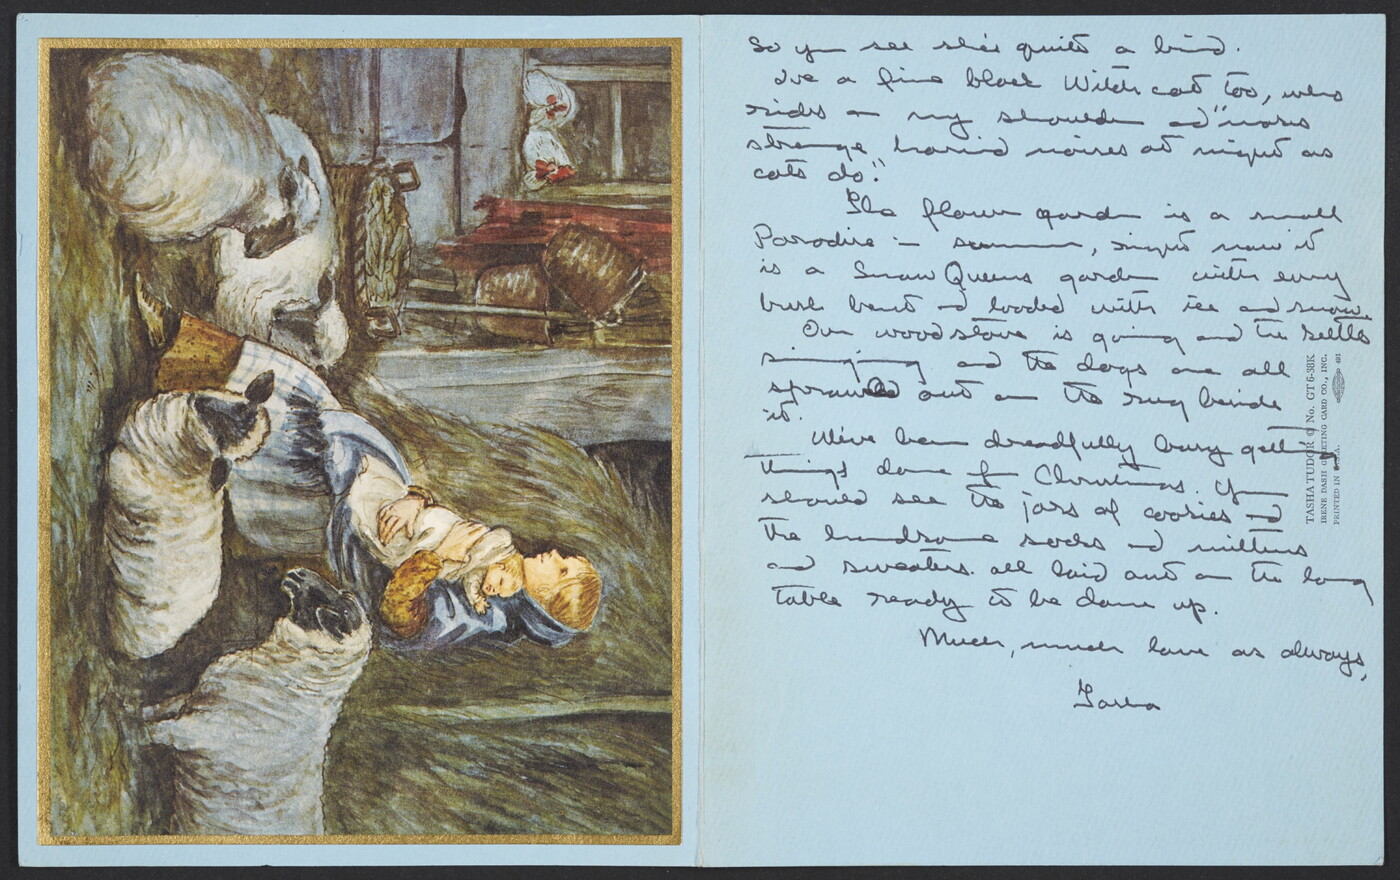 So you see she's quite a bird.
I've a fine black Witch cat too, who
rides on my shoulder and "makes
strange, horrid noises at night as
cats do".
The flower garden is a small
Paradise in summer, right now it
is a Snow Queens garden with every
bush bent and loaded with ice and snow.
Our wood stove is going and the kettle
singing and the dogs are all
sprawled out on the rug beside
it.
We've been dreadfully busy getting
things done for Christmas. You
should see the jars of cookies and
the handsome socks and mittens
and sweaters all laid out on the long
table ready to be done up.
Much, much love as always,
Tasha
TASHA TUDOR © No. GT 6-38K
IRENE DASH GREETING CARD CO., INC.
PRINTED IN U.S.A.
491